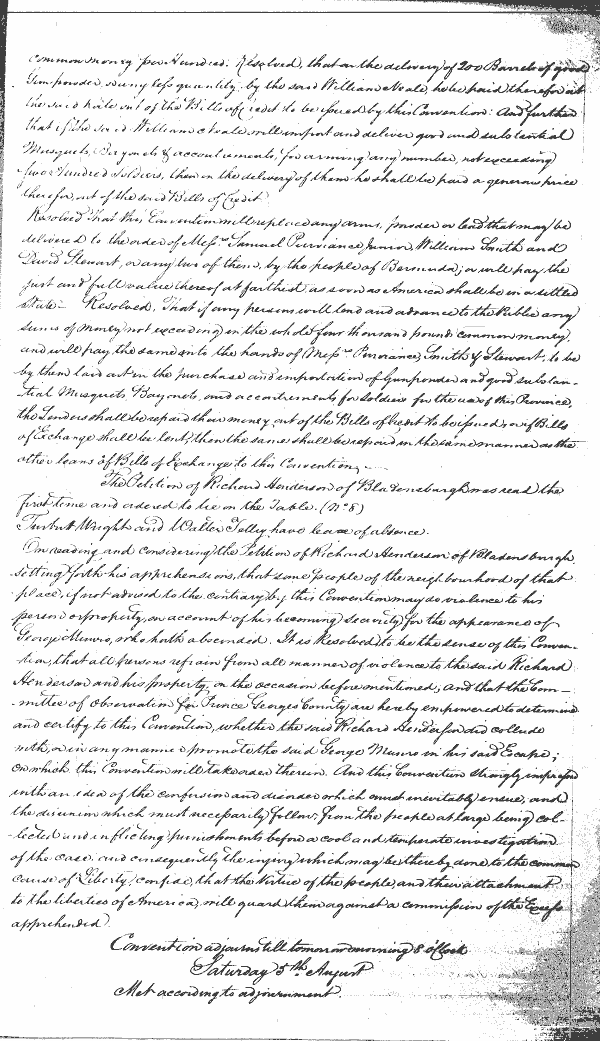 common money per Hundred. Resolved, that on the delivery of 200 Barrels of good
Gunpowder, or any less quantity, by the said William Neale, he be paid therefor at
the said Rate out of the Bills of Credit to be issued by this Convention: And further
that if the said William Neale will import and deliver good and substantial
Musquets, Bayonets & accoutrements, for arming any number, not exceeding
five Hundred Soldiers, then on the delivery of them he shall be paid a generous price
therefor, out of the said Bills of Credit.
Resolved That this Convention will replace any arms, powder or lead that may be
delivered to the order of Messrs. Samuel Purviance Junior, William Smith and
David Stewart, or any two of them, by the people of Bermuda; or will pay the
just and full value thereof at farthest as soon as America shall be in a settled
state — Resolved, That if any persons will lend and advance to the Public any
sums of money not exceeding in the whole four thousand pounds common money,
and will pay the same into the hands of Messrs. Purviance, Smith & Stewart, to be
by them laid out in the purchase and importation of Gunpowder and good substan-
tial Musquets, Bayonets, and accoutrements for Soldiers for the use of this Province,
the Lenders shall be repaid their money out of the Bills of Credit to be issued, or if Bills
of Exchange shall be lent, then the same shall be repaid in the same manner as the
other loans of Bills of Exchange to this Convention. —
The Petition of Richard Henderson of Bladensburgh was read the
first time and ordered to lie on the Table. (No. 8)
Turbutt Wright and Walter Tolly have leave of absence.
On reading and considering the Petition of Richard Henderson of Bladensburgh
setting forth his apprehensions, that some people of the neighbourhood of that
place, if not advised to the contrary by this Convention may do violence to his
person or property, on account of his becoming security for the appearance of
George Munro, who hath absconded. It is Resolved to be the sense of this Conven-
tion, that all persons refrain from all manner of violence to the said Richard
Henderson and his property, on the occasion before mentioned, and that the Com-
mittee of Observation for Prince Georges County are hereby empowered to determine
and certify to this Convention, whether the said Richard Henderson did collude
with, or in any manner promote the said George Munro in his said Escape;
on which this Convention will take order therein. And this Convention strongly impressed
with an idea of the confusion and disorder which must inevitably ensue, and
the disunion which must necessarily follow, from the people at large being col-
-lected and inflicting punishments before a cool and temperate investigation
of the case and consequently the injury which may be thereby done to the common
cause of Liberty, confide, that the Virtue of the people, and their attachment
to the liberties of America, will guard them against a commission of the Excess
apprehended.
Convention adjourns till tomorrow morning 8 oClock
Saturday 5th. August
Met according to adjournment.